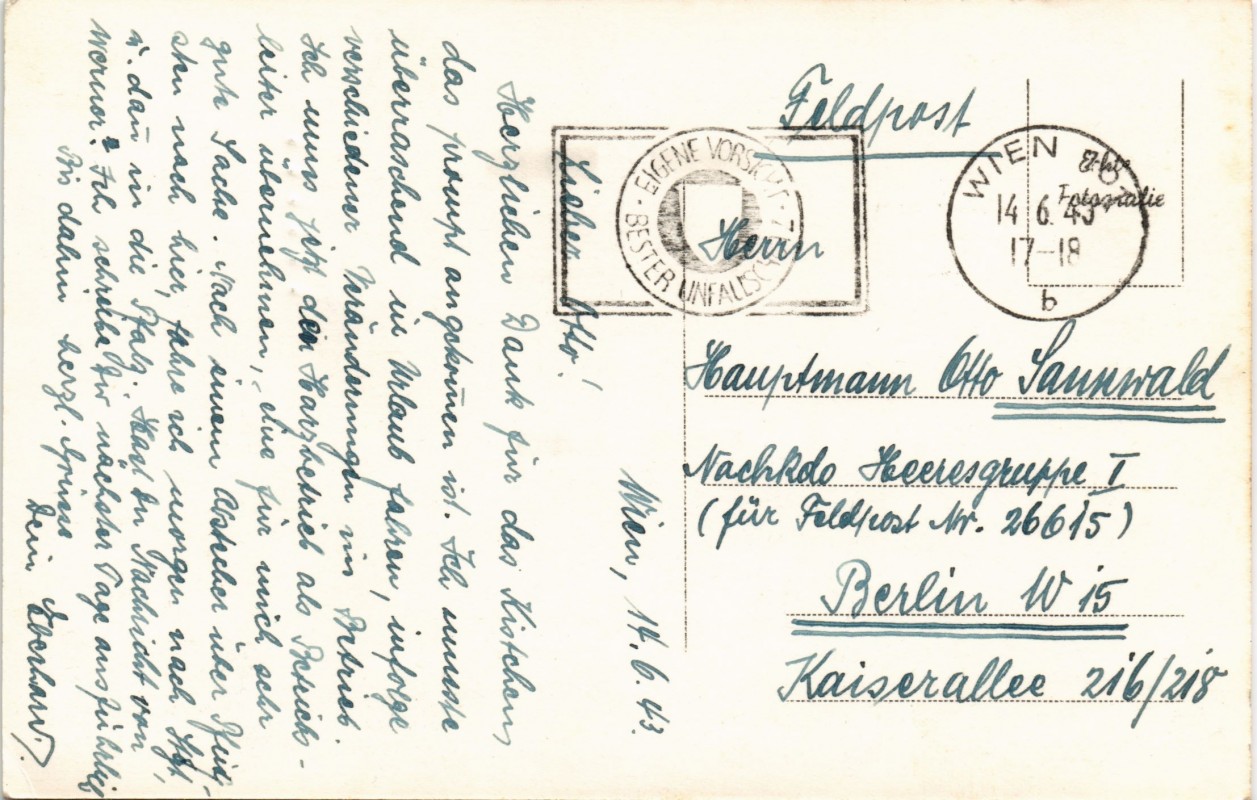 Feldpost
EIGENE VORSICHT
BESTER UNFALLSCHUTZ
WIEN
14 6.43
17-18
b
Echte
Fotografie
Herrn
Hauptmann Otto Sannwald
Nachkdo Heeresgruppe I
(für Feldpost Nr. 26615)
Berlin W 15
Kaiserallee 216/218
Wien, 14.6.43.
Lieber Otto!
Herzlichen Dank für das Kistchen,
das prompt angekom̄en ist. Ich musste
überraschend in Urlaub fahren, infolge
verschiedener Veränderungen im Betrieb.
Ich muss jetzt den Harzbetrieb als Betriebs-
leiter übernehmen, eine für mich sehr
gute Sache. Nach einem Abstecher über Pfing-
sten nach hier, fahre ich morgen nach
u. dan̄ in die Pfalz. Hast Du Nachricht von
Werner? Ich schreibe Dir nächster Tage ausführlich
Bis dahin herzl. Grüsse
Dein Eberhard.